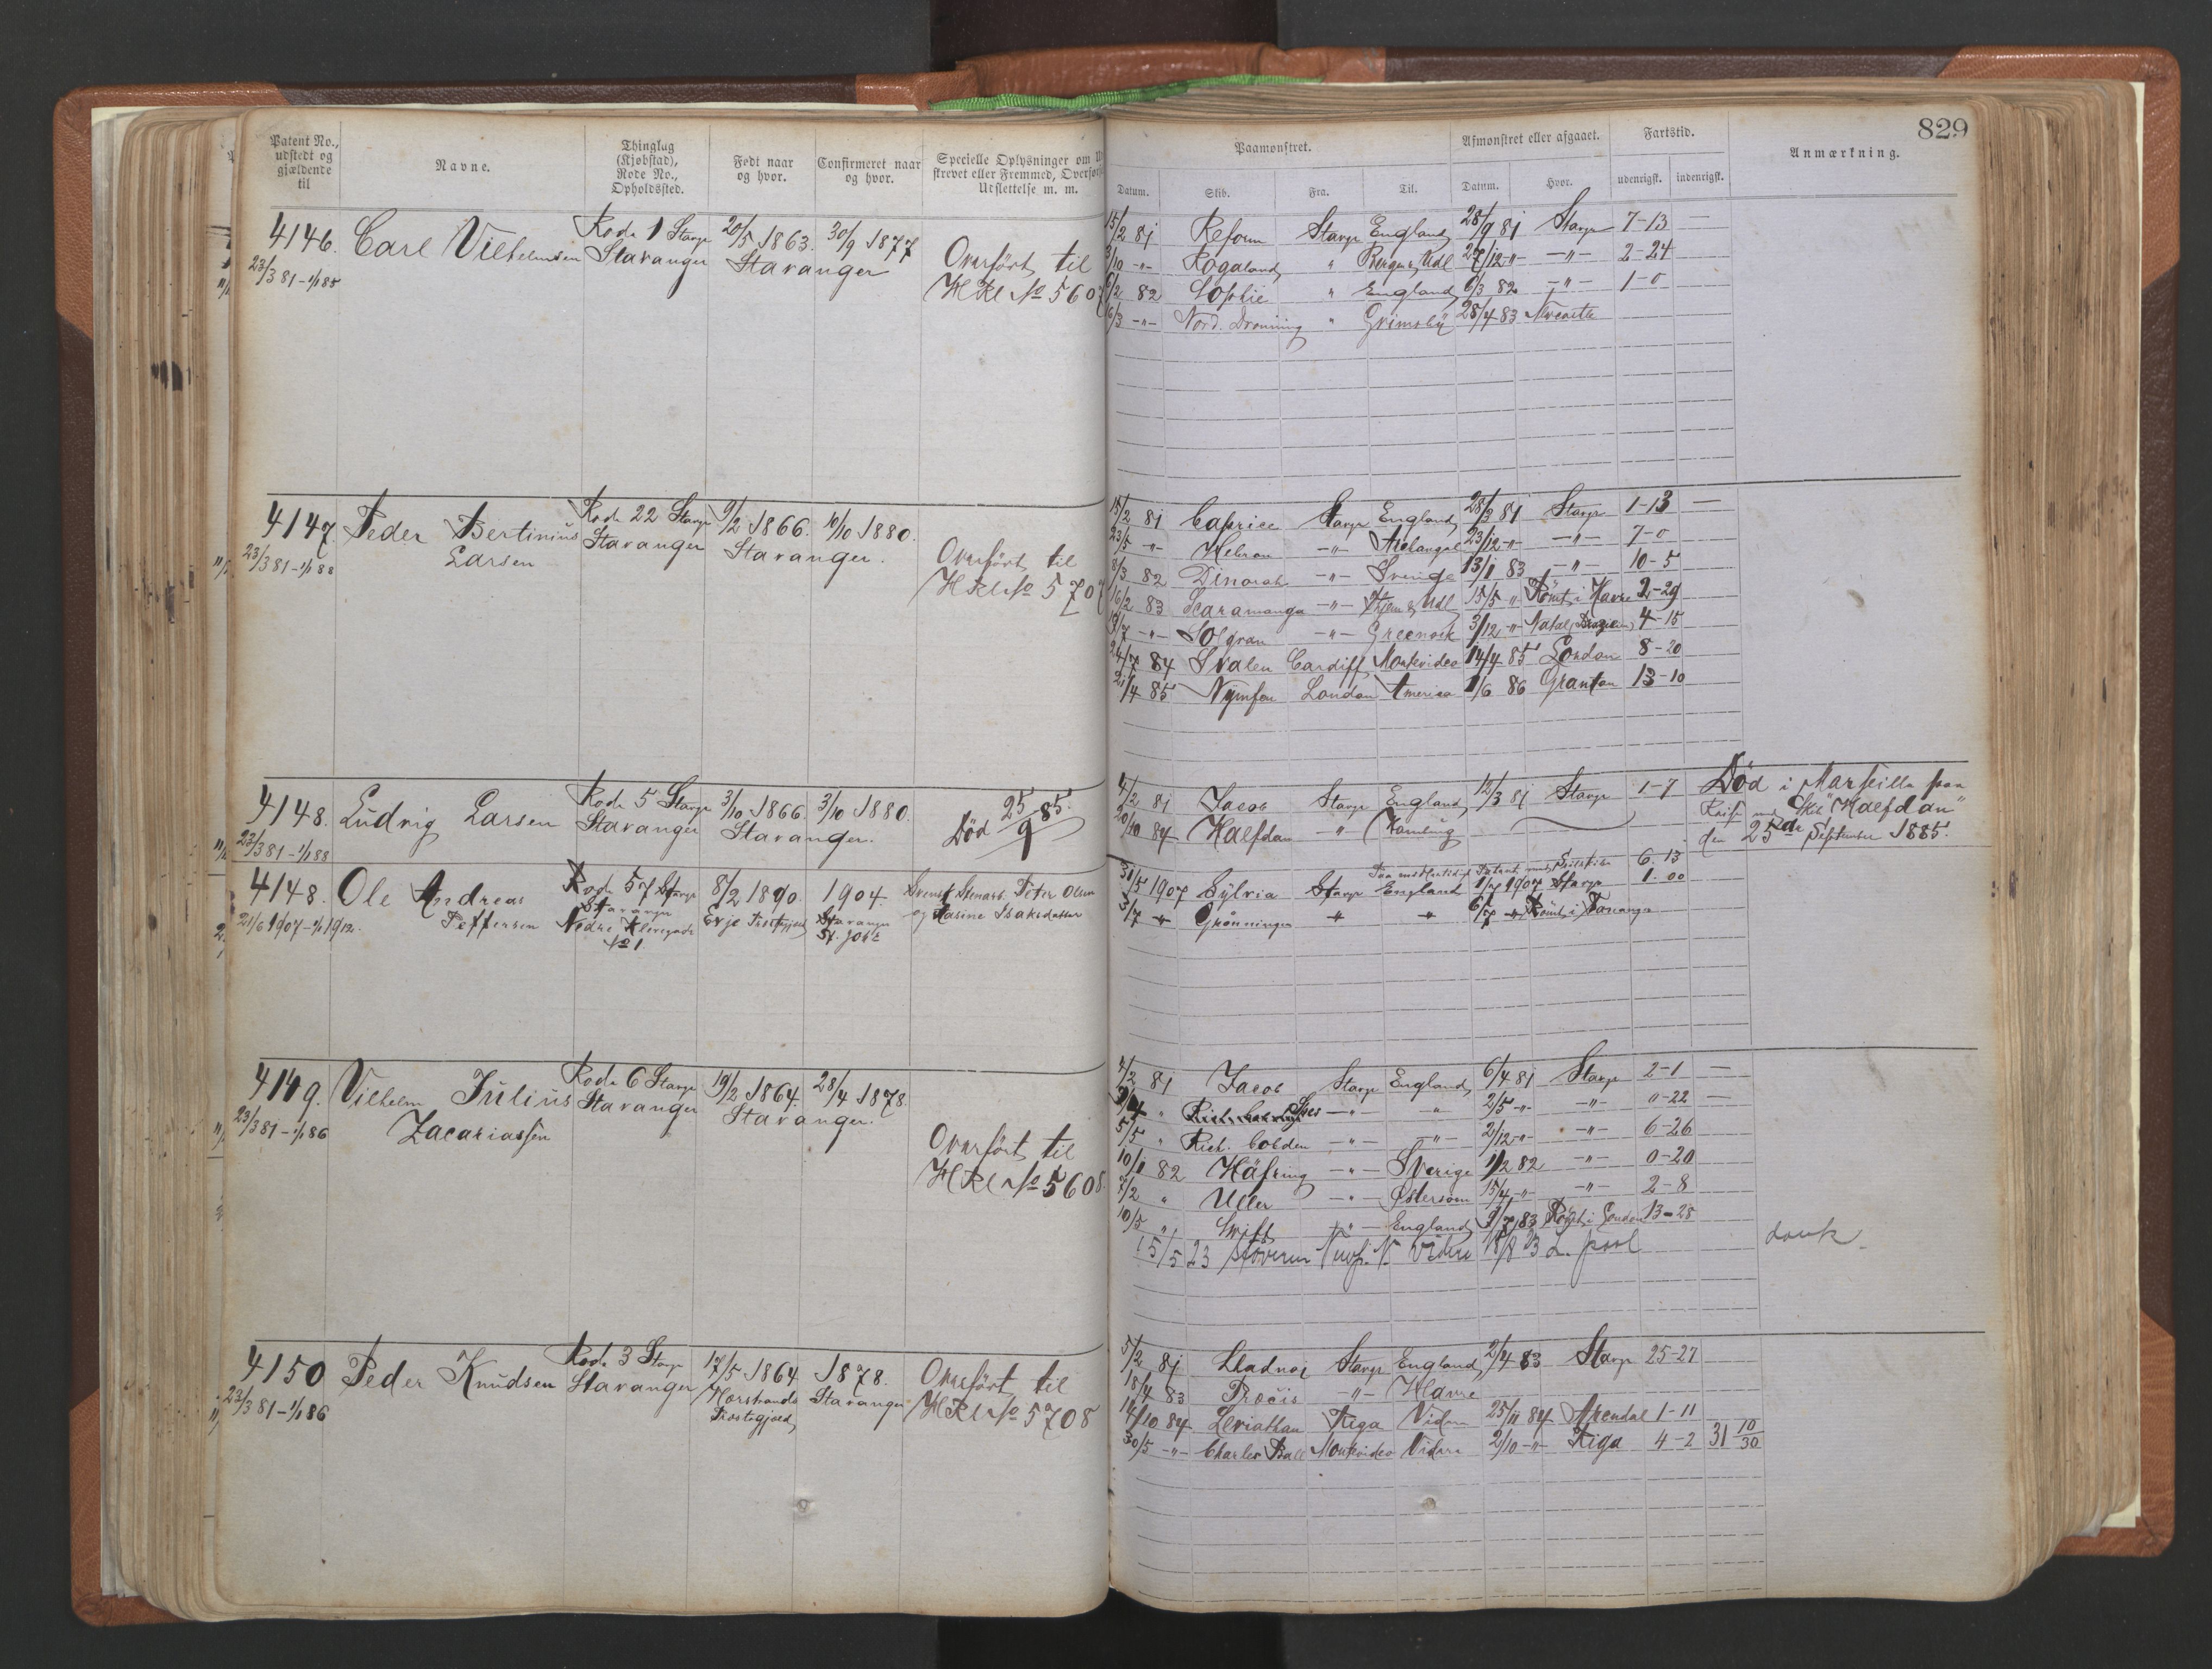 829
Patent No., udstedt og gjældende til
Navne.
Thinglag (Kjøbstad), Rode No., Opholdssted.
Født naar og hvor.
Confirmeret naar og hvor.
Specielle Oplysninger om
Udslettelse m. m.
Paamønstret.
Afmønstret eller afgaaet.
Fartstid.
Anmærkning.
Datum. Skib. Fra. Til. Datum. Hvor. udenrigsk. indenrigsk.
4146. Carl Vilhelmsen Rode 1 Stavgr 20/5 1863. 30/9 1877
23/3 81 - 1/1 85 Stavanger Stavanger
Overført til
HRl No 5607
15/2 81 Reform Stavgr England 28/9 81 Stavgr 7-13 —
3/10 -"- Rogaland " Bergen & Udl 27/12 -"- -"- 2-24
6/2 82 Sophie " England 6/3 82 -"- 1-0
16/3 -"- Nord. Dronning " Grimsby 28/4 83
4147 Peder Bertinius Rode 22 Stavgr 9/2 1866. 10/10 1880.
Larsen Stavanger Stavanger.
23/3 81 - 1/1 88
Overført til
HRl No 5707
15/2 81 Caprice Stavgr England 28/3 81 Stavgr 1-13 —
23/5 -"- Hebron -"- 23/12 -"- -"- 7-0
8/3 82 Dinorah -"- Sverige 13/1 83 -"- 10-5
16/2 83 Scaramanga -"- Thjem & Udl 15/5 " Rømt i Havre 2-29
-"- Solgran -"- Greenock 3/12 -"- Natal, 4-15
24/7 84 Svalen Cardiff Montevideo 14/4 85 London 8-20
21/4 85 Nymfen London America 1/6 86 Granton 13-10
4148. Ludvig Larsen Rode 5 Stavgr 3/10 1866. 3/10 1880.
23/3 81 - 1/1 88 Stavanger Stavanger.
Død 25/9 85.
4/2 81 Jacob Stavgr England 12/3 81 Stavgr 1-7
20/10 84 Halfdan -"- Hamburg
Død i Marseille paa
Reise med Skib "Halfdan"
den 25de September 1885.
4148. Ole Andreas Rode 57 Stavgr 8/2 1890. 1904.
Peffersen Stavanger
21/6 1907 - 1/1 1912. Nedre No 1 Stavanger
St. Joh.
Peter Olsen
og Rasine Isaksdatter
6. 13
31/5 1907 Sylvia Stavgr England 1/7 1907 Stavgr 1. 00
3/7 " Grønningen " " 6/7 -"- Rømt i Tananger
4149. Vilhelm Julius Rode 6 Stavgr 19/2 1864. 28/4 1878.
23/3 81 - 1/1 86 Zacariassen Stavanger Stavanger.
Overført til
HRl No 5608
4/2 81 Jacob Stavgr England 6/4 81 Stavgr 2-1 —
" -"- -"- 2/5 -"- -"- "-22 —
5/5 " Rich. Cobden -"- -"- 2/12 -"- -"- 6-26
10/1 82 Häfring -"- Sverige 1/2 82 -"- 0-20
7/2 " Uller -"- Østersøen 15/4 -"- -"- 2-8
10/5 " Swift -"- England 9/7 83 Rømt i London 13-28
15/5 23
4150 Peder Knudsen Rode 3 Stavgr 17/5 1864. 1878.
23/3 81 - 1/1 86 Stavanger Stavanger
Præstegjæld
Overført til
HRl No 5708
5/2 81 Stavgr England 2/4 83 Stavgr 25-27
18/4 83 -"- Havre
14/10 84 Leviathan Riga Videre 25/11 84 Arendal 1-11
30/5 -"- Charles Ball Montevideo Videre 2/10 -"- Riga 4-2 31 10/30